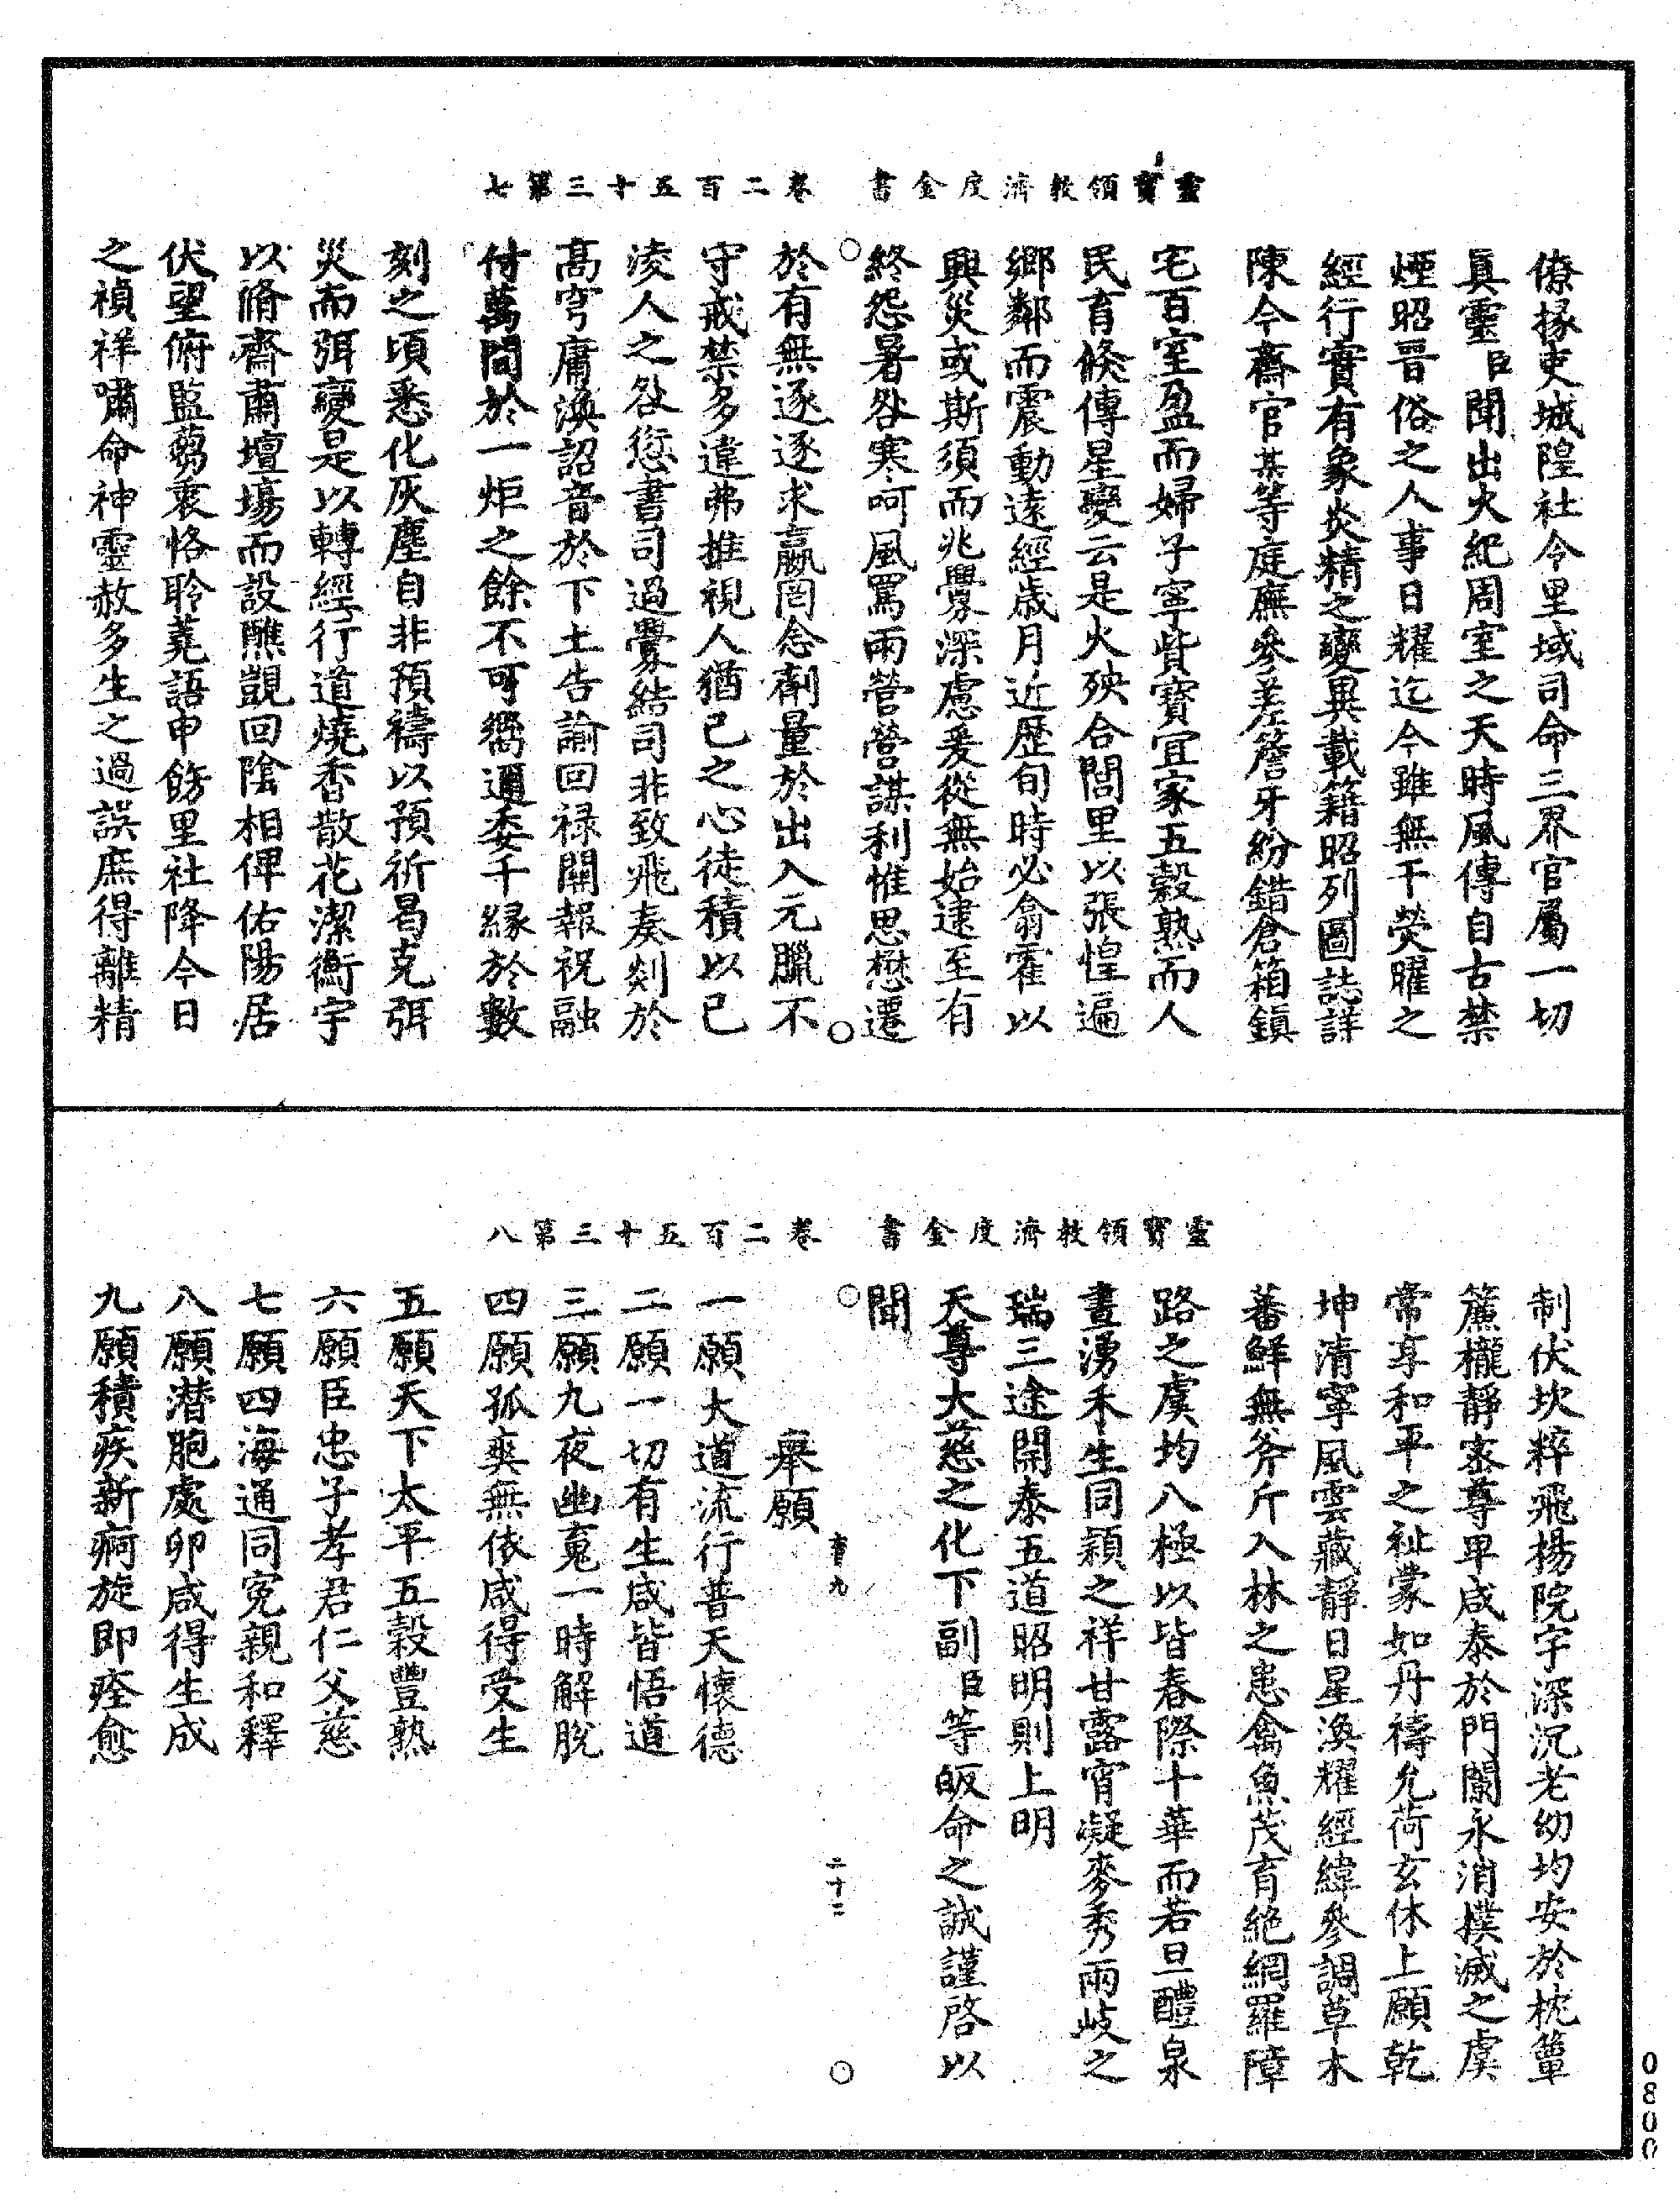 靈寶領教濟度金書　卷二百五十三第七
僚掾吏城隍社令里域司命三界官屬一切
眞靈臣聞出火紀周室之天時風傳自古禁
煙昭晋俗之人事日耀迄今雖無干熒曜之
經行實有象炎精之變異載籍昭列圖誌詳
陳今齋官某等庭廡參差簷牙紛錯倉箱鎮
宅百室盈而婦子寧貲寶宜家五穀熟而人
民育倐傳星變云是火殃合閭里以張惶遍
鄉鄰而震動遠經歲月近歷旬時必翕霍以
興災或斯須而兆釁深慮爰從無始逮至有
終怨暑咎寒呵風罵雨營營謀利惟思懋遷
於有無逐逐求贏罔念劑量於出入元臘不
守戒禁多違弗推視人猶己之心徒積以己
淩人之咎愆書司過釁結司非致飛奏剡於
髙穹庸渙詔音於下土告諭回禄關報祝融
付萬間於一炬之餘不可嚮邇委千緣於數
刻之頃悉化灰塵自非預禱以預祈曷克弭
災而弭變是以轉經行道燒香散花潔衡宇
以脩齋肅壇場而設醮覬回隂相俾佑陽居
伏望俯監蒭衷恪聆蕘語申飭里社降今日
之禎祥嘯命神靈赦多生之過誤庶得離精
靈寶領教濟度金書　卷二百五十三第八
制伏坎粹飛揚院宇深沉老幼均安於枕簟
簾櫳靜宻尊卑咸泰於門闌永消撲滅之虞
常享和平之祉蒙如丹禱允荷玄休上願乾
坤清寧風雲藏靜日星渙耀經緯參調草木
蕃鮮無斧斤入林之患禽魚茂育絶網羅障
路之虞均八極以皆春際十華而若旦醴泉
晝湧禾生同穎之祥甘露宵凝麥秀兩岐之
瑞三途開泰五道昭明則上明
天尊大慈之化下副臣等皈命之誠謹啓以
聞
二十二
舉願
一願大道流行普天懷德
二願一切有生咸皆悟道
三願九夜幽寃一時解脫
四願孤爽無依咸得受生
五願天下太平五穀豐熟
六願臣忠子孝君仁父慈
七願四海通同寃親和釋
八願潜胞處卵咸得生成
九願積疾新痾旋即痊愈
0800